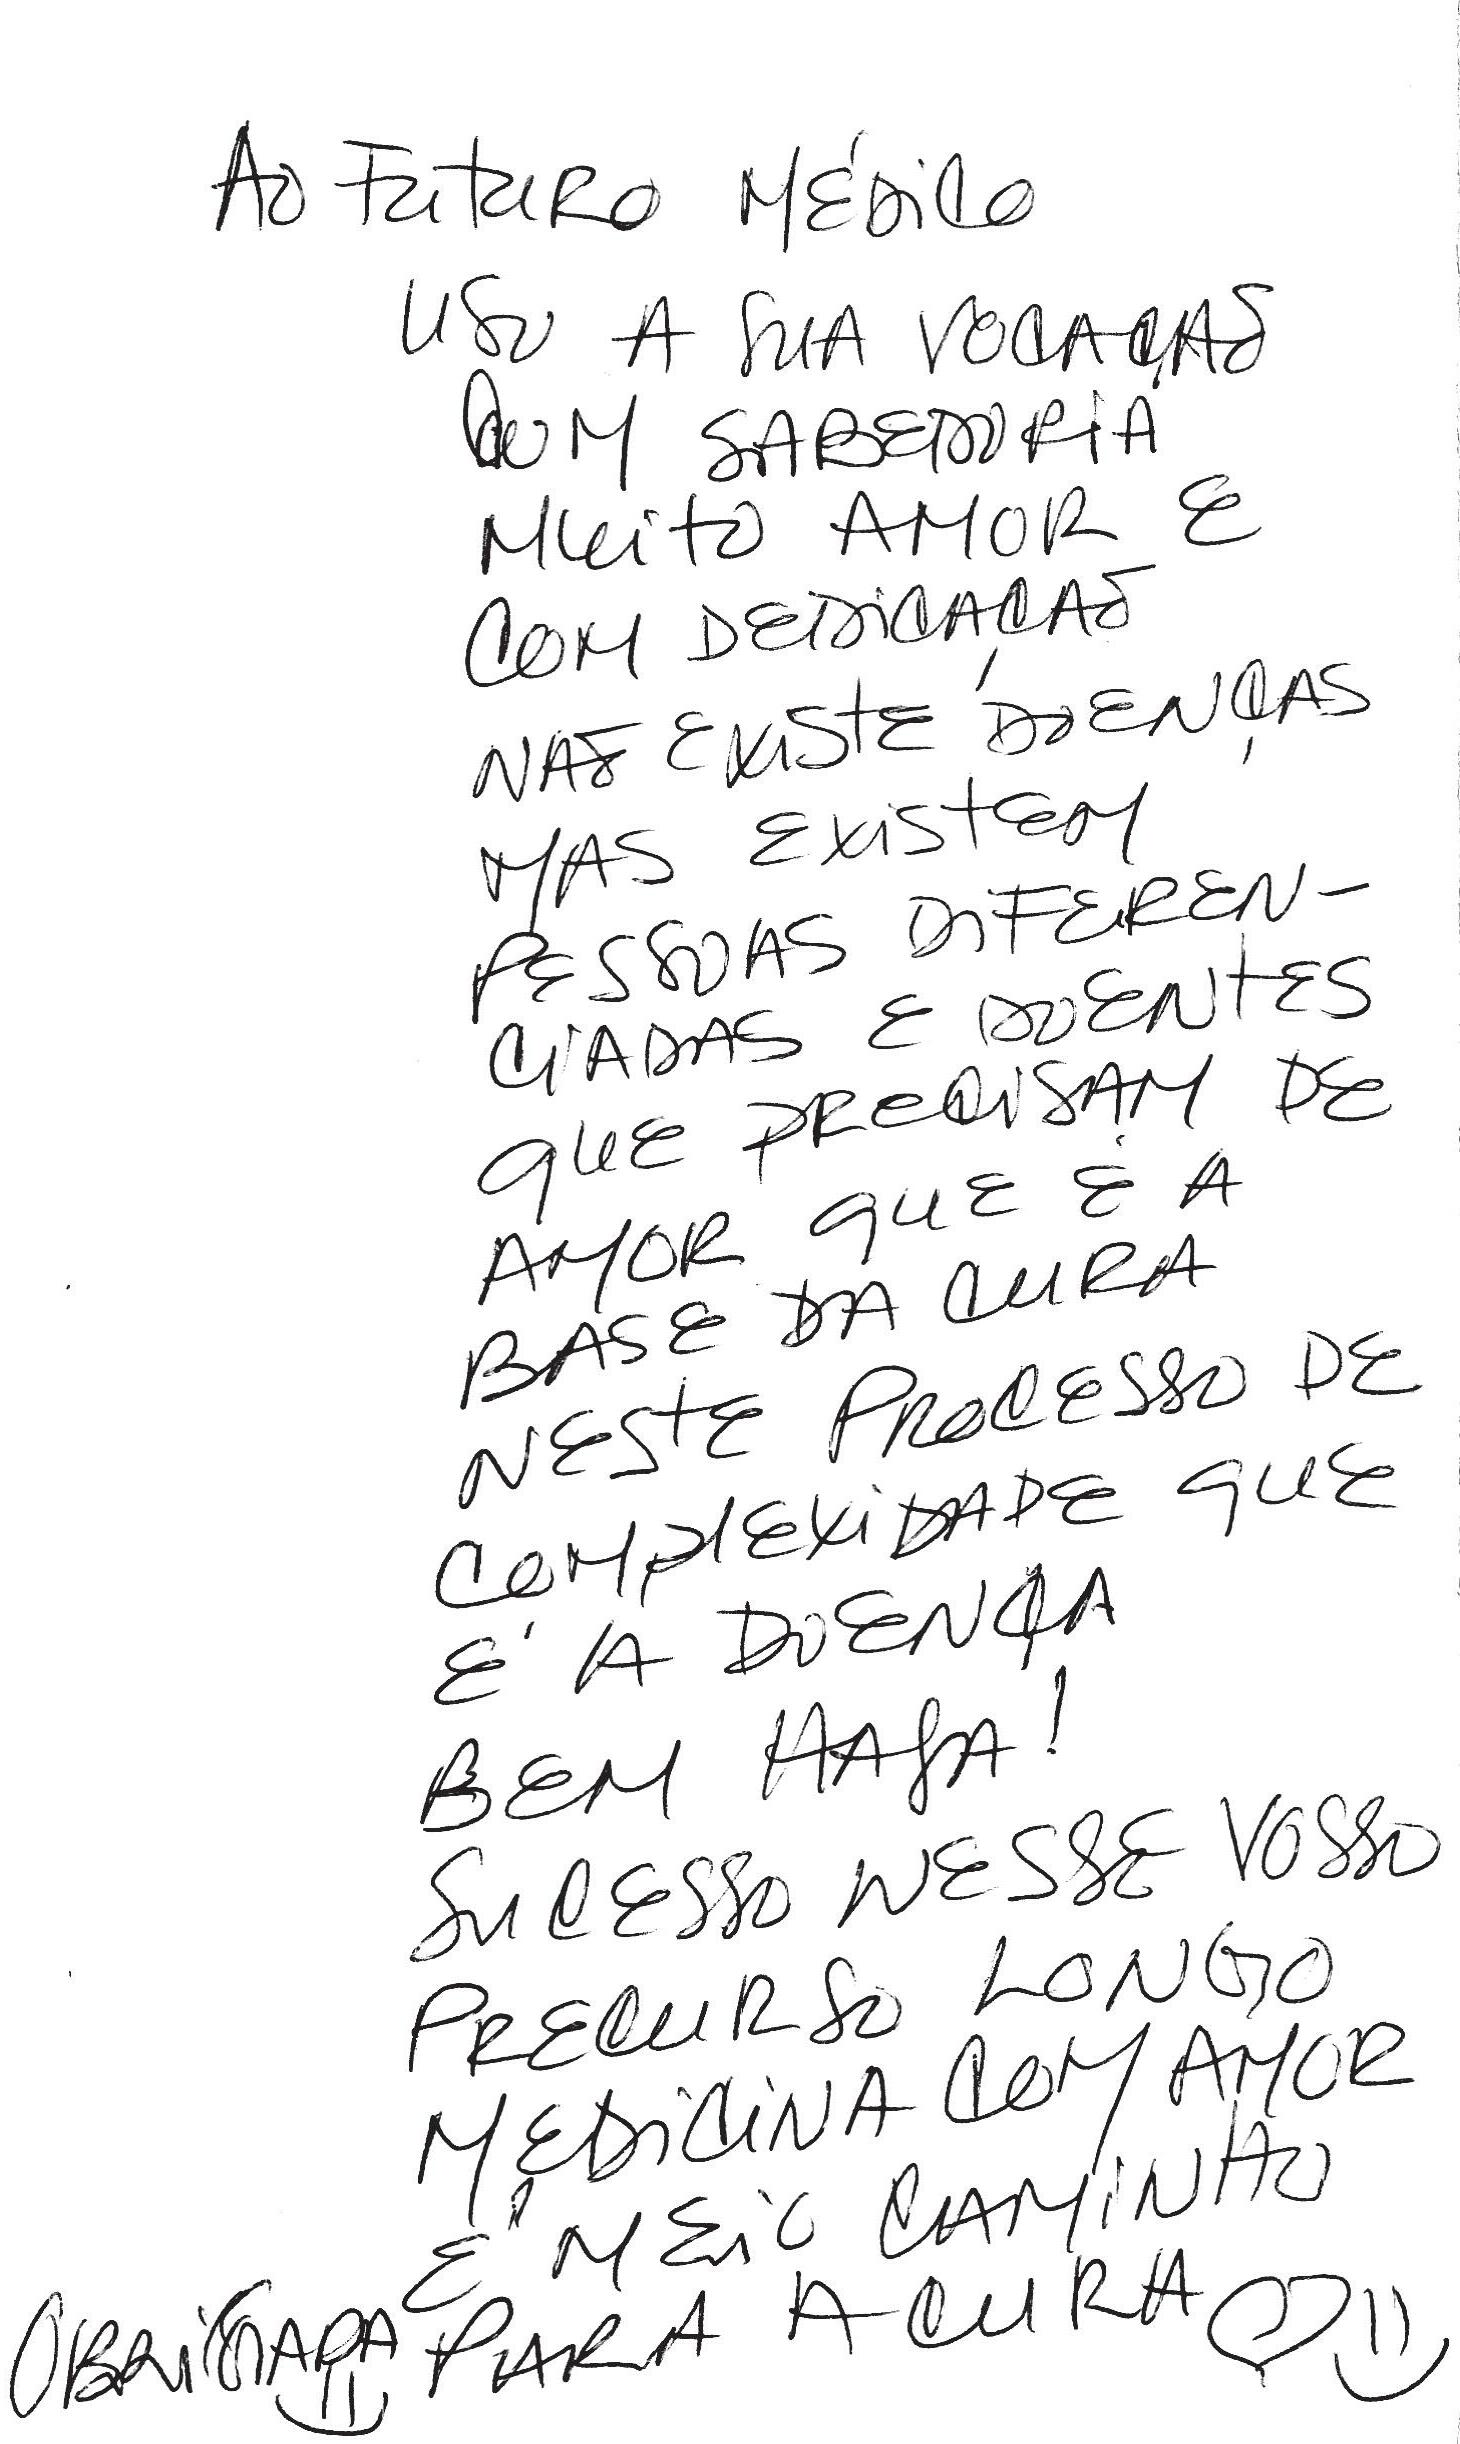 AO FUTURO MÉDICO
USO A SUA VOCAÇÃO
COM SABEDORIA
MUITO AMOR E
COM DEDICAÇÃO
NÃO EXISTE DOENÇAS
MAS EXISTEM
PESSOAS DIFEREN-
CIADAS E DOENTES
QUE PRECISAM DE
AMOR QUE É A
BASE DA CURA
NESTE PROCESSO DE
COMPLEXIDADE QUE
É A DOENÇA
BEM HAJA!
SUCESSO NESSE VOSSO
PRECURSO LONGO
MEDICINA COM AMOR
É MEIO CAMINHO
PARA A CURA
OBRIGADA